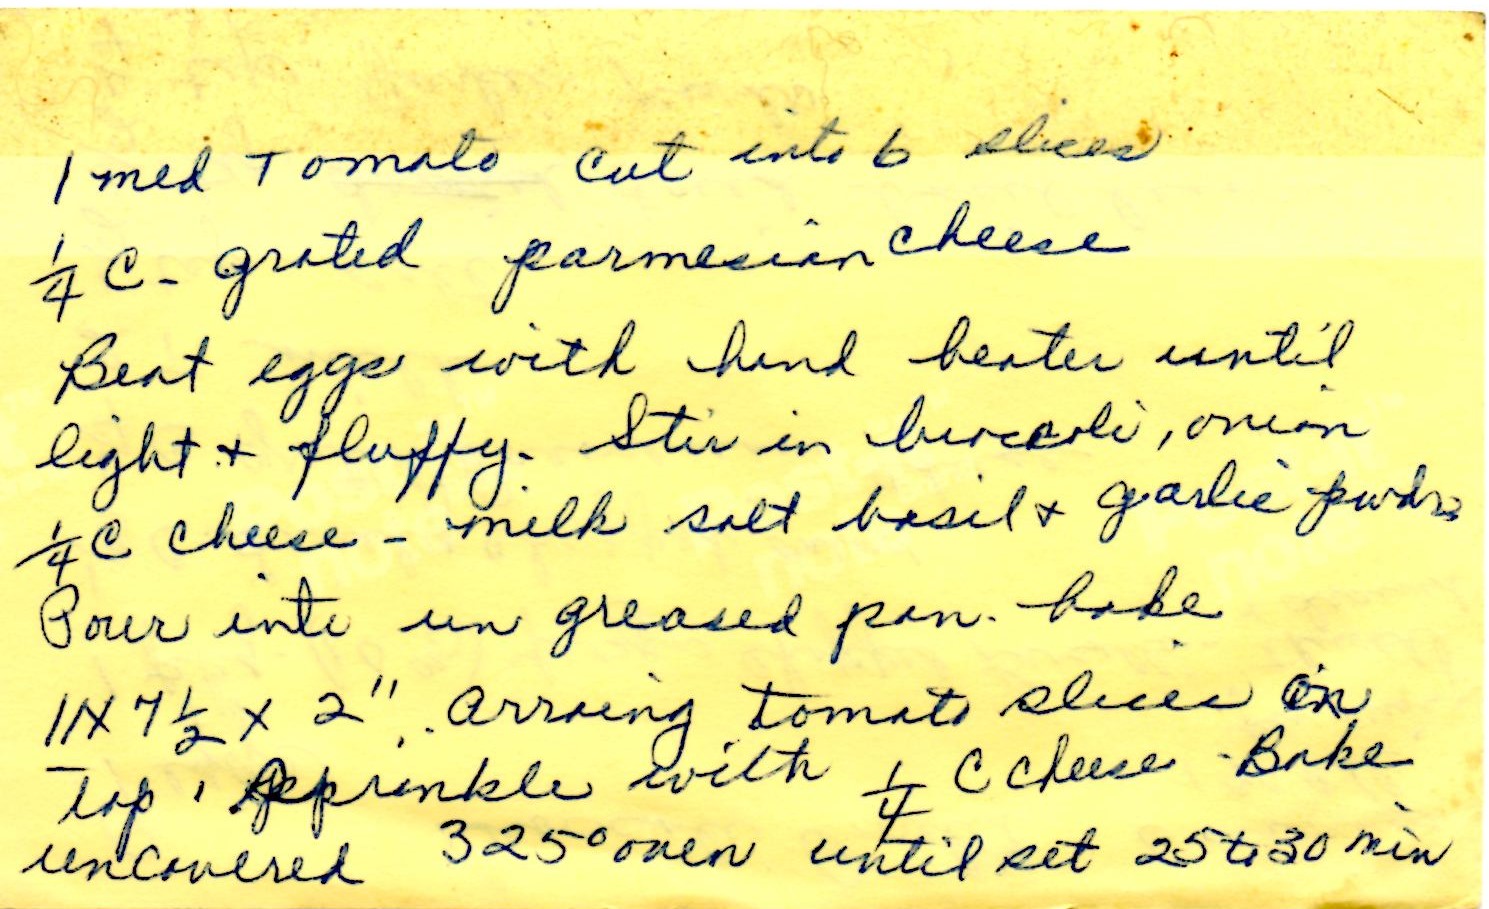 1 med Tomato cut into 6 slices
1/4 C - grated parmesian cheese
Beat eggs with hand beater until
light + fluffy. Stir in broccoli, onion
1/4 C cheese - milk salt basil + garlic pwdr
Pour into un greased pan. bake
11X7 1/2 X 2". Arraing tomato slices on
top. Sprinkle with 1/4 C cheese - Bake
uncovered 325° oven until set 25 to 30 min